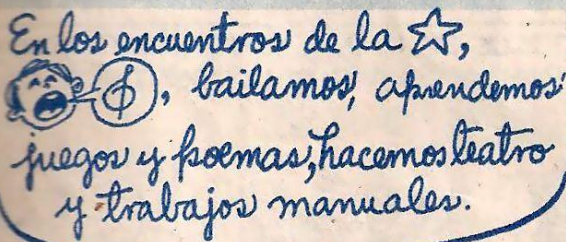 En los encuentros de la ☆,
, bailamos, aprendemos
juegos y poemas, hacemos teatro
y trabajos manuales.